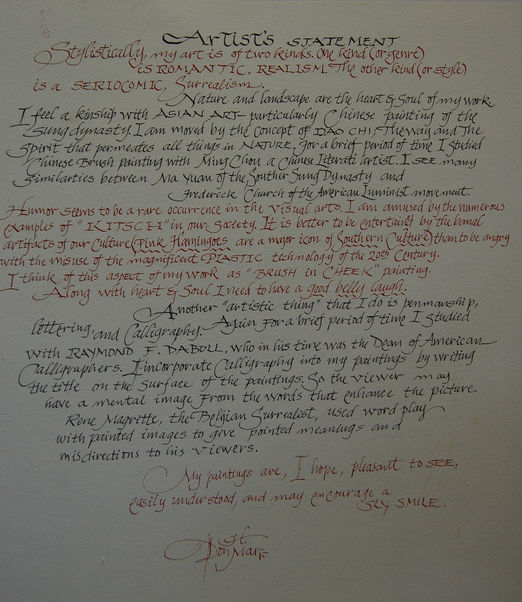 Artist's STATEMENT
Stylistically, my art is of two kinds. One kind (or genre)
is ROMANTIC, REALISM. The other kind (or style)
is a SERIOCOMIC, Surrealism.
Nature and landscape are the heart & Soul of my work
I feel a kinship with ASIAN ART - particularly Chinese painting of the
Sung dynasty. I am moved by the concept of DAO CHI; The way and The
Spirit that permeates all things in NATURE. For a brief period of time I studied
Chinese Brush painting with Ming Chou a Chinese Literati artist. I SEE many
similarties between Ma Yuan of the Souther Sung Dynasty and
Frederick Church of the American Luminist movement.
Humor seems to be a rare occurrence in the visual arts. I am amused by the numerous
examples of "KITSCH" in our society. It is better to be entertained by the banal
artifacts of our Culture (Pink Flamingoes are a major icon of Southern Culture) than to be angry
with the misuse of the magnificent PLASTIC technology of the 20th Century.
I think of this aspect of my work as "BRUSH in CHEEK" painting.
Along with heart & Soul I need to have a good belly laugh.
Another "artistic thing" that I do is penmanship,
lettering and Calligraphy. Again For a brief period of time I studied
with RAYMOND F. DABOLL, who in his time was the Dean of American
Calligraphers. I incorporate Calligraphy into my paintings by writing
the title on the surface of the paintings. So the viewer may
have a mental image From the words that enhance the picture.
Rene Magritte, the Belgian Surrealist, used word play
with painted images to give pointed meanings and
misdirections to his viewers.
My paintings are, I hope, pleasant to SEE,
easily understood, and may encourage a
SLY SMILE.